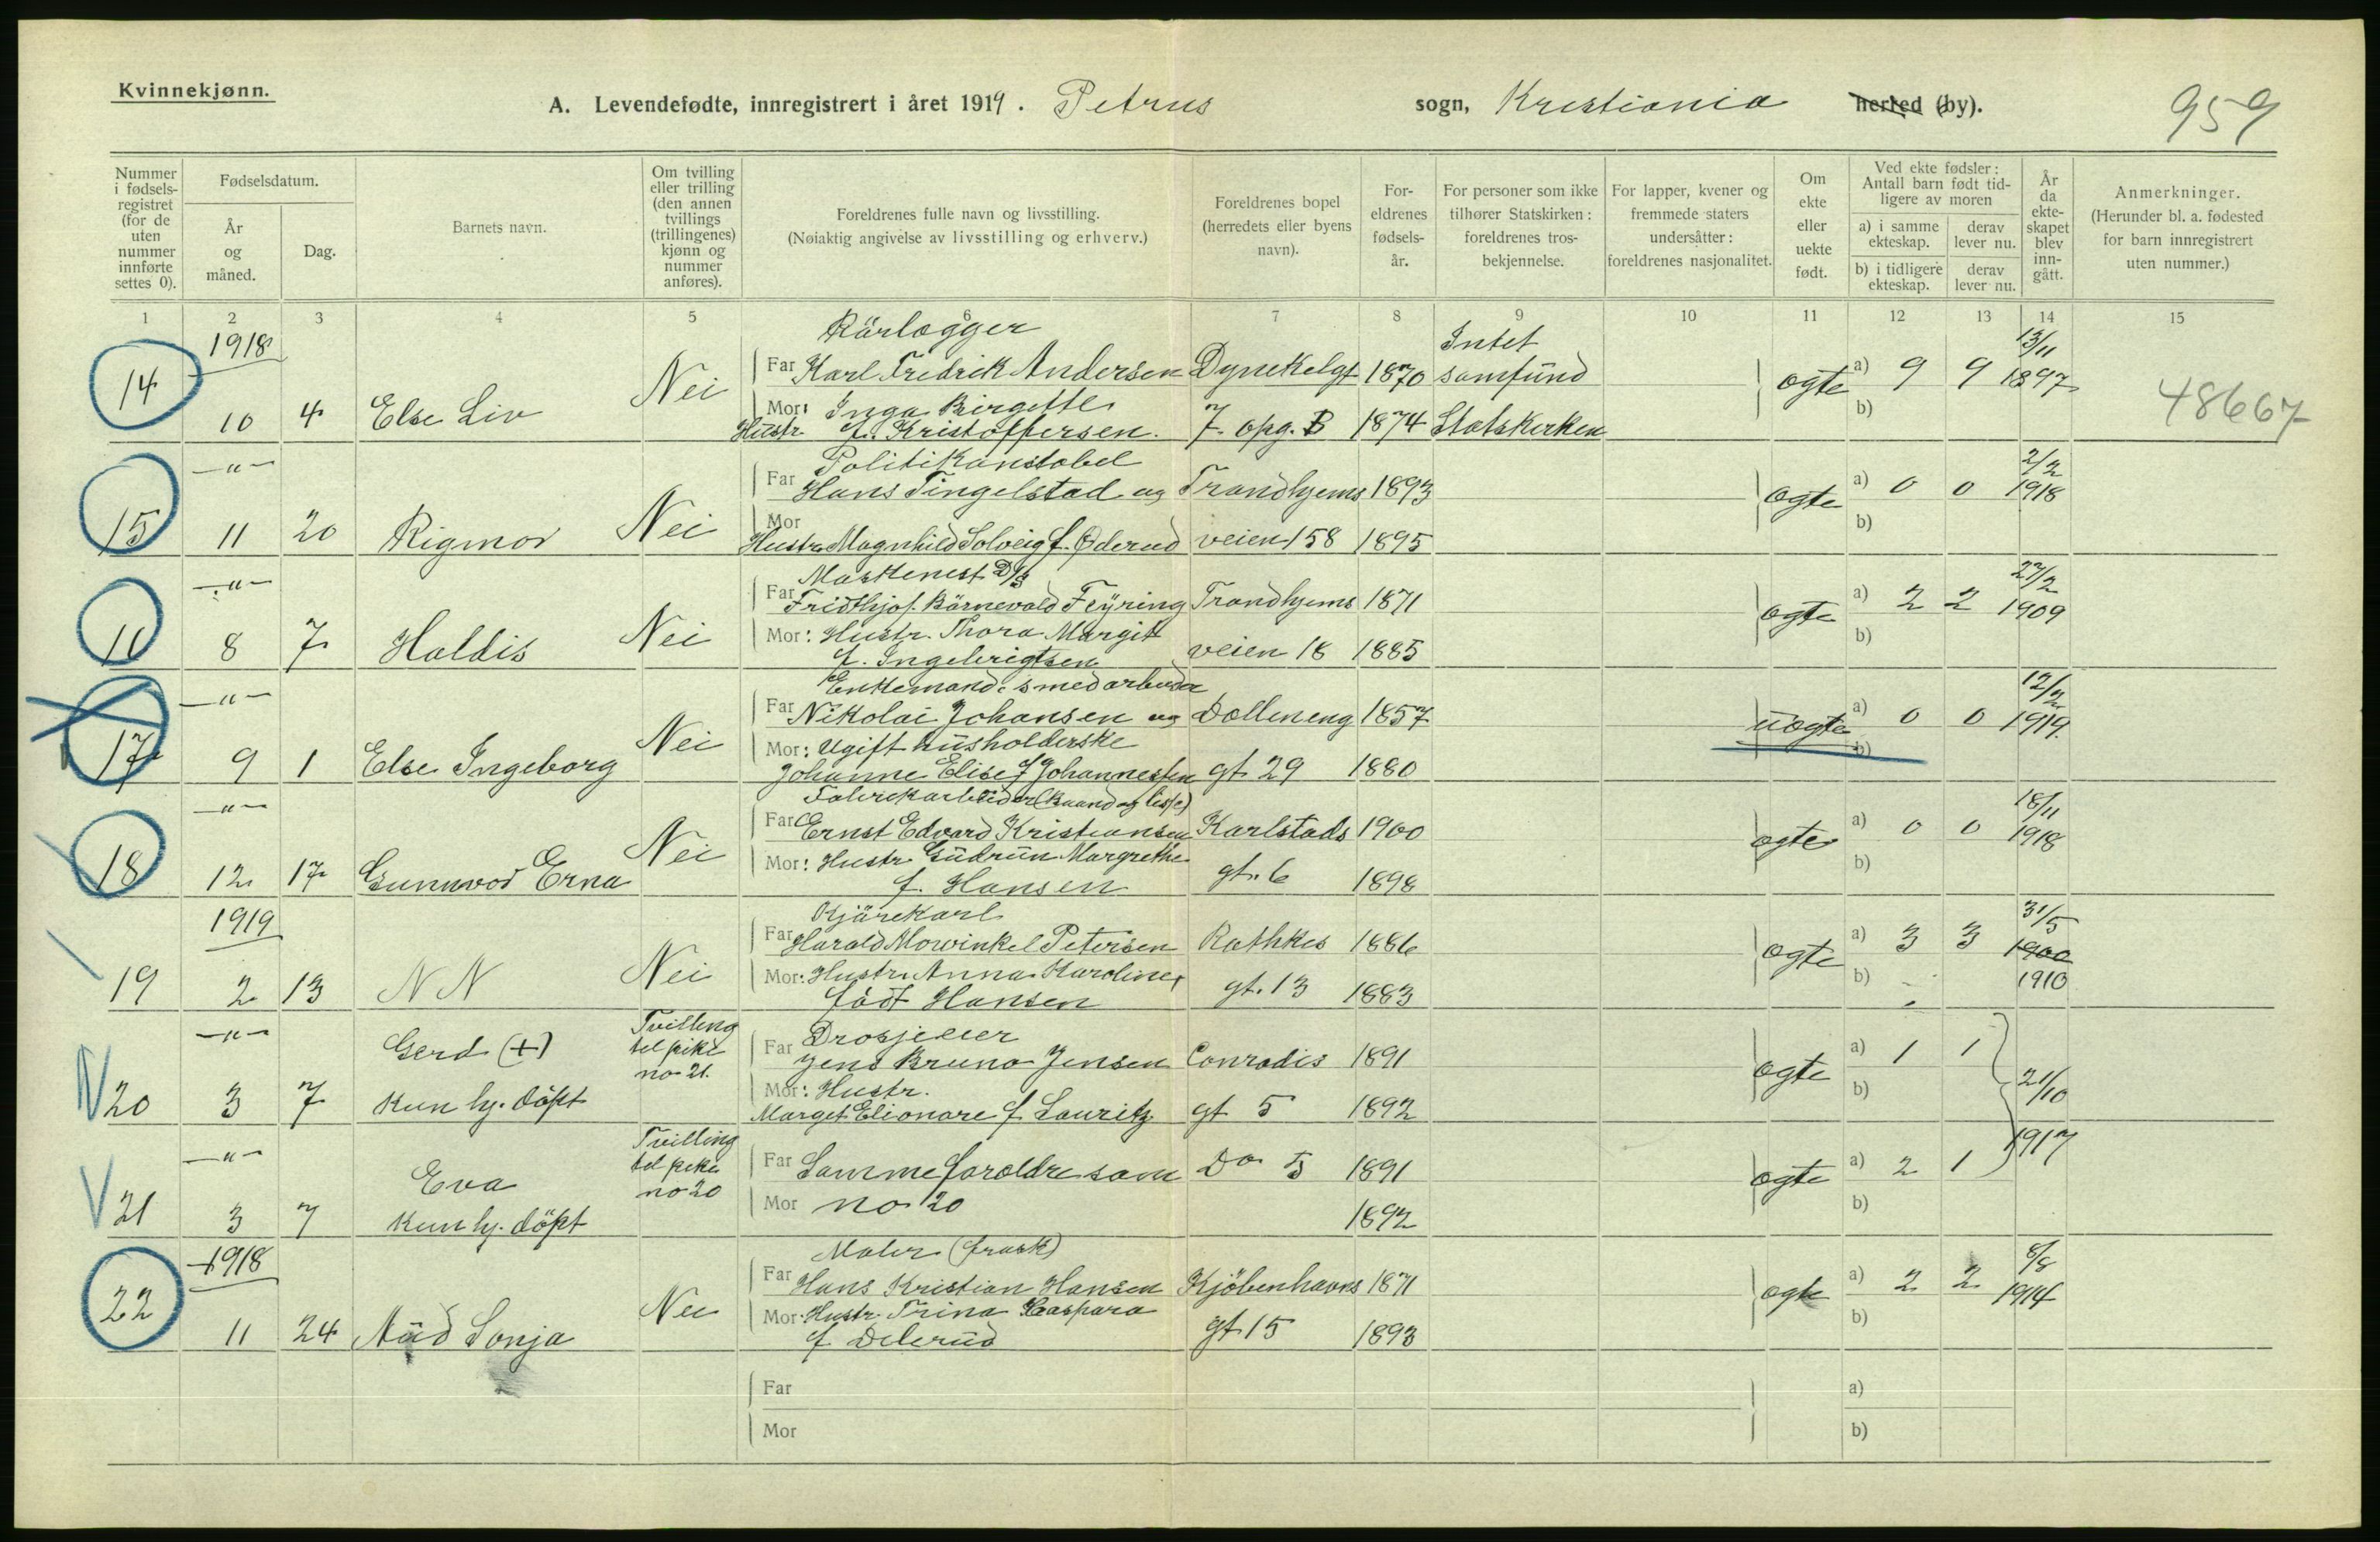 Kvinnekjønn.
A. Levendefødte, innregistrert i året 1919. Petrus sogn, Kristiania herred (by).
959
Nummer i fødsels-registret (for de uten nummer innførte settes 0).
Fødselsdatum.
År og måned.
Dag.
Barnets navn.
Om tvilling eller trilling (den annen tvillings (trillingenes) kjønn og nummer anføres).
Foreldrenes fulle navn og livsstilling.
(Nøiaktig angivelse av livsstilling og erhverv.)
Foreldrenes bopel (herredets eller byens navn).
For-eldrenes fødsels-år.
For personer som ikke tilhører Statskirken: foreldrenes tros-bekjennelse.
For lapper, kvener og fremmede staters undersåtter: foreldrenes nasjonalitet.
Om ekte eller uekte født.
Ved ekte fødsler: Antall barn født tid-ligere av moren
a) i samme ekteskap. derav lever nu.
b) i tidligere ekteskap. derav lever nu.
År da ekte-skapet blev inn-gått.
Anmerkninger.
(Herunder bl. a. fødested for barn innregistrert uten nummer.)
1 2 3 4 5 6 7 8 9 10 11 12 13 14 15
1918 Rörlægger Intet 13/11
14 Nei Far Karl Fredrik Andersen Dynekilgt 1870 samfund ogte a) 9 9 1897
10 4 Else Liv Mor: Inga Birgitte b) 48667
Hustr f. Kristoffersen. 7 opg. B 1874 Statskirken
—"— Politikonstabel 2/2
Far Hans Tingelstad og Trondhjems 1893 ogte a) 0 0 1918
15 11 20 Rigmor Nei Mor b)
Hustr Magnhild Solveig f. Øderud veien 158 1895
—"— Maskinest D/S 27/2
Far Fridthjof Börnevald Feyring Trondhjems 1871 a) 2 2 1909
16 8 7 Haldis Nei Mor: Hustr. Thora Margit ogte b)
f. Ingebrigtsen veien 18 1885
—"— Enkemand: smedarbeider 12/2
Far Nikolai Johansen og Dælleneng 1857 uogte a) 0 0 1919.
17 9 1 Else Ingeborg Nei Mor: Ugift husholderske b)
Johanne Elise f Johannessen gt 29 1880
—"— Fabrikarbeider (Baand og lisse) 18/11
Far Ernst Edvard Kristiansen Karlstads 1900 ogte a) 0 0 1918
18 12 17 Gunnvor Erna Nei Mor: Hustr Gudrun Margrethe b)
f. Hansen gt. 6 1898
1919 Kjörekarl 31/5
Far Harald Mowinkel Petersen Rathkes 1886 ogte a) 3 3 1900
19 2 13 N N Nei Mor: Hustr. Anna Karoline b) 1910
född Hansen gt. 13 1883
—"— Gerd (+) Tvilling til pike no 21. Drosjeeier
Far Jens Bruno Jensen Conradis 1891 ogte a) 1 1
20 3 7 Kun hj. döpt Mor: Hustr. b) 21/10
Marget Elionore f. Lauritz gt 5 1892
—"— Eva Tvilling til pike no 20 1917
Far Samme foreldre som Do 5 1891 ogte a) 2 1
21 3 7 Kun hj. döpt Mor no 20 1892 b)
1918 Maler (frask) 8/8
22 Far Hans Kristian Hansen Kjöbenhavns 1871 ogte a) 2 2 1914
Nei Mor: Hustr. Trina Kaspara b)
11 24 Aud Sonja f Delerud gt 15 1893
Far a)
Mor b)